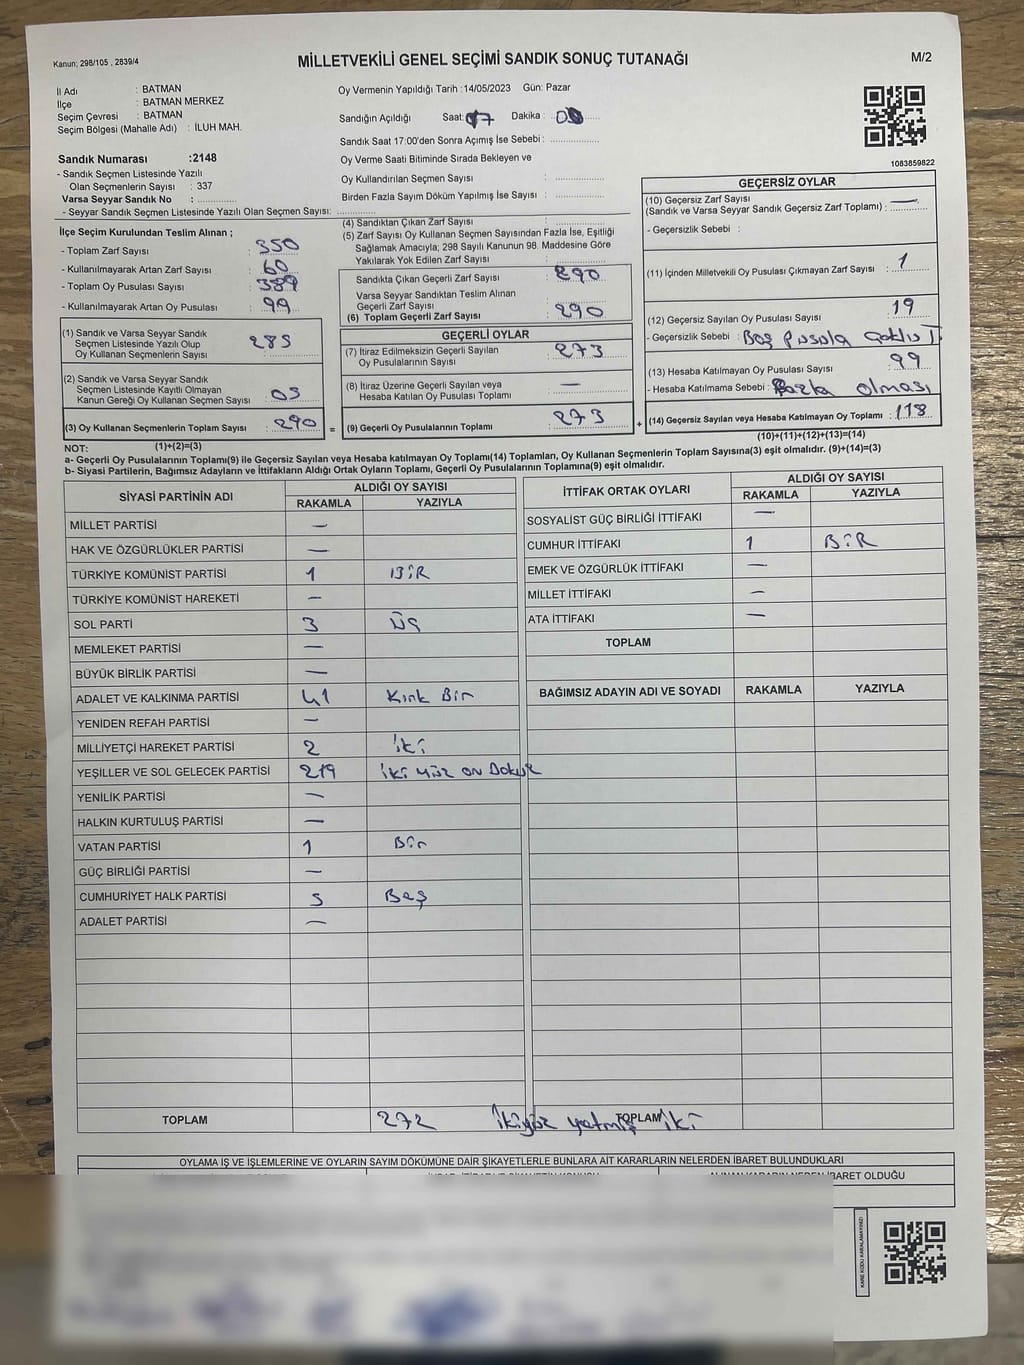 Kanun; 298/105 , 2839/4
MİLLETVEKİLİ GENEL SEÇİMİ SANDIK SONUÇ TUTANAĞI
M/2
İl Adı : BATMAN
İlçe : BATMAN MERKEZ
Seçim Çevresi : BATMAN
Seçim Bölgesi (Mahalle Adı) : İLUH MAH.
Sandık Numarası :2148
- Sandık Seçmen Listesinde Yazılı
Olan Seçmenlerin Sayısı : 337
Varsa Seyyar Sandık No :
- Seyyar Sandık Seçmen Listesinde Yazılı Olan Seçmen Sayısı:
Oy Vermenin Yapıldığı Tarih :14/05/2023 Gün: Pazar
Sandığın Açıldığı Saat: 17 Dakika : 00
Sandık Saat 17:00'den Sonra Açımış İse Sebebi :
Oy Verme Saati Bitiminde Sırada Bekleyen ve
Oy Kullandırılan Seçmen Sayısı :
Birden Fazla Sayım Döküm Yapılmış İse Sayısı :
1083859822
İlçe Seçim Kurulundan Teslim Alınan ;
- Toplam Zarf Sayısı : 350
- Kullanılmayarak Artan Zarf Sayısı : 60
- Toplam Oy Pusulası Sayısı : 389
- Kullanılmayarak Artan Oy Pusulası : 99
(1) Sandık ve Varsa Seyyar Sandık
Seçmen Listesinde Yazılı Olup
Oy Kullanan Seçmenlerin Sayısı : 285
(2) Sandık ve Varsa Seyyar Sandık
Seçmen Listesinde Kayıtlı Olmayan
Kanun Gereği Oy Kullanan Seçmen Sayısı : 05
(3) Oy Kullanan Seçmenlerin Toplam Sayısı : 290 =
(1)+(2)=(3)
(4) Sandıktan Çıkan Zarf Sayısı :
(5) Zarf Sayısı Oy Kullanan Seçmen Sayısından Fazla İse, Eşitliği
Sağlamak Amacıyla; 298 Sayılı Kanunun 98. Maddesine Göre
Yakılarak Yok Edilen Zarf Sayısı :
Sandıkta Çıkan Geçerli Zarf Sayısı : 290
Varsa Seyyar Sandıktan Teslim Alınan
Geçerli Zarf Sayısı :
(6) Toplam Geçerli Zarf Sayısı : 290
GEÇERLİ OYLAR
(7) İtiraz Edilmeksizin Geçerli Sayılan
Oy Pusulalarının Sayısı : 273
(8) İtiraz Üzerine Geçerli Sayılan veya
Hesaba Katılan Oy Pusulası Toplamı : —
(9) Geçerli Oy Pusulalarının Toplamı : 273 +
GEÇERSİZ OYLAR
(10) Geçersiz Zarf Sayısı
(Sandık ve Varsa Seyyar Sandık Geçersiz Zarf Toplamı) : —
- Geçersizlik Sebebi :
(11) İçinden Milletvekili Oy Pusulası Çıkmayan Zarf Sayısı : 1
(12) Geçersiz Sayılan Oy Pusulası Sayısı : 19
- Geçersizlik Sebebi : Boş Pusola
(13) Hesaba Katılmayan Oy Pusulası Sayısı : 99
- Hesaba Katılmama Sebebi : Fazla olması
(14) Geçersiz Sayılan veya Hesaba Katılmayan Oy Toplamı : 118
(10)+(11)+(12)+(13)=(14)
NOT:
a- Geçerli Oy Pusulalarının Toplamı(9) ile Geçersiz Sayılan veya Hesaba katılmayan Oy Toplamı(14) Toplamları, Oy Kullanan Seçmenlerin Toplam Sayısına(3) eşit olmalıdır. (9)+(14)=(3)
b- Siyasi Partilerin, Bağımsız Adayların ve İttifakların Aldığı Ortak Oyların Toplamı, Geçerli Oy Pusulalarının Toplamına(9) eşit olmalıdır.
SİYASİ PARTİNİN ADI ALDIĞI OY SAYISI
RAKAMLA YAZIYLA
MİLLET PARTİSİ —
HAK VE ÖZGÜRLÜKLER PARTİSİ —
TÜRKİYE KOMÜNİST PARTİSİ 1 BİR
TÜRKİYE KOMÜNİST HAREKETİ —
SOL PARTİ 3 Üç
MEMLEKET PARTİSİ —
BÜYÜK BİRLİK PARTİSİ —
ADALET VE KALKINMA PARTİSİ 41 Kırk Bir
YENİDEN REFAH PARTİSİ —
MİLLİYETÇİ HAREKET PARTİSİ 2 İki
YEŞİLLER VE SOL GELECEK PARTİSİ 219 İki yüz on Dokuz
YENİLİK PARTİSİ —
HALKIN KURTULUŞ PARTİSİ —
VATAN PARTİSİ 1 Bir
GÜÇ BİRLİĞİ PARTİSİ —
CUMHURİYET HALK PARTİSİ 5 Beş
ADALET PARTİSİ —
TOPLAM 272 İkiyüz yetmiş iki
İTTİFAK ORTAK OYLARI ALDIĞI OY SAYISI
RAKAMLA YAZIYLA
SOSYALİST GÜÇ BİRLİĞİ İTTİFAKI —
CUMHUR İTTİFAKI 1 BİR
EMEK VE ÖZGÜRLÜK İTTİFAKI —
MİLLET İTTİFAKI —
ATA İTTİFAKI —
TOPLAM
BAĞIMSIZ ADAYIN ADI VE SOYADI RAKAMLA YAZIYLA
TOPLAM
OYLAMA İŞ VE İŞLEMLERİNE VE OYLARIN SAYIM DÖKÜMÜNE DAİR ŞİKAYETLERLE BUNLARA AİT KARARLARIN NELERDEN İBARET BULUNDUKLARI
ALINAN KARARIN NEDEN İBARET OLDUĞU
KARE KODU KARALAMAYINIZ!